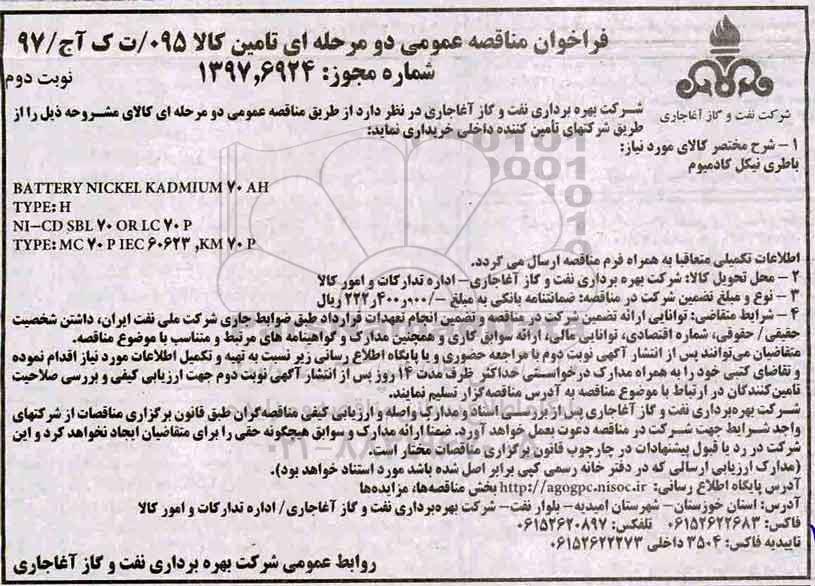 فراخوان مناقصه عمومی دو مرحله ای تامین کالا ۰۹۵/ت ک آج/۹۷
شماره مجوز: ۱۳۹۷,۶۹۲۴
نوبت دوم
شرکت نفت و گاز آغاجاری
شرکت بهره برداری نفت و گاز آغاجاری در نظر دارد از طریق مناقصه عمومی دو مرحله ای کالای مشروحه ذیل را از
طریق شرکتهای تأمین کننده داخلی خریداری نماید:
۱ – شرح مختصر کالای مورد نیاز:
باطری نیکل کادمیوم
BATTERY NICKEL KADMIUM ۷۰ AH
TYPE: H
NI-CD SBL ۷۰ OR LC ۷۰ P
TYPE: MC ۷۰ P IEC ۶۰۶۲۳ ,KM ۷۰ P
اطلاعات تکمیلی متعاقبا به همراه فرم مناقصه ارسال می گردد.
۲ – محل تحویل کالا: شرکت بهره برداری نفت و گاز آغاجاری– اداره تدارکات و امور کالا
۳ – نوع و مبلغ تضمین شرکت در مناقصه: ضمانتنامه بانکی به مبلغ –/۲۲۲٫۴۰۰٫۰۰۰ ریال
۴ – شرایط متقاضی: توانایی ارائه تضمین شرکت در مناقصه و تضمین انجام تعهدات قرارداد طبق ضوابط جاری شرکت ملی نفت ایران، داشتن شخصیت
حقیقی/ حقوقی، شماره اقتصادی، توانایی مالی، ارائه سوابق کاری و همچنین مدارک و گواهینامه های مرتبط و متناسب با موضوع مناقصه.
متقاضیان می‌توانند پس از انتشار آگهی نوبت دوم با مراجعه حضوری و یا پایگاه اطلاع رسانی زیر نسبت به تهیه و تکمیل اطلاعات مورد نیاز اقدام نموده
و تقاضای کتبی خود را به همراه مدارک درخواستی حداکثر ظرف مدت ۱۴ روز پس از انتشار آگهی نوبت دوم جهت ارزیابی کیفی و بررسی صلاحیت
تامین‌کنندگان در ارتباط با موضوع مناقصه به آدرس مناقصه‌گزار تسلیم نمایند.
شرکت بهره‌برداری نفت و گاز آغاجاری پس از بررسی اسناد و مدارک واصله و ارزیابی کیفی مناقصه‌گران طبق قانون برگزاری مناقصات از شرکتهای
واجد شرایط جهت شرکت در مناقصه دعوت بعمل خواهد آورد. ضمنا ارائه مدارک و سوابق هیچگونه حقی را برای متقاضیان ایجاد نخواهد کرد و این
شرکت در رد یا قبول پیشنهادات در چارچوب قانون برگزاری مناقصات مختار است.
(مدارک ارزیابی ارسالی که در دفتر خانه رسمی کپی برابر اصل شده باشد مورد استناد خواهد بود).
آدرس پایگاه اطلاع رسانی: http://agogpc.nisoc.ir بخش مناقصه‌ها، مزایده‌ها
آدرس: استان خوزستان– شهرستان امیدیه– بلوار نفت– شرکت بهره‌برداری نفت و گاز آغاجاری/ اداره تدارکات و امور کالا
فاکس: ۰۶۱۵۲۶۲۲۶۸۳ تلفکس: ۰۶۱۵۲۶۲۰۸۹۷
تاییدیه فاکس: ۳۵۰۴ داخلی ۰۶۱۵۲۶۲۲۲۷۳
روابط عمومی شرکت بهره برداری نفت و گاز آغاجاری